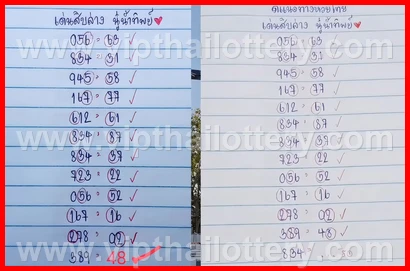 เด่นสิบล่าง ปู่น้ำทิพย์
056 = 63 ✓
834 = 31 ✓
945 = 58 ✓
167 = 77 ✓
612 = 61 ✓
834 = 87 ✓
834 = 37 ✓
723 = 22 ✓
056 = 52 ✓
167 = 16 ✓
278 = 02 ✓
389 = 48 ✓
เด่นสิบล่าง ปู่น้ำทิพย์
056 = 63
834 = 31 ✓
945 = 58 ✓
167 = 77 ✓
612 = 61 ✓
834 = 87 ✓
834 = 37 ✓
723 = 22 ✓
056 = 52 ✓
167 = 16 ✓
278 = 02 ✓
389 = 48 ✓
834
www.vipthailottery.com
www.vipthailottery.com
www.vipthailottery.com